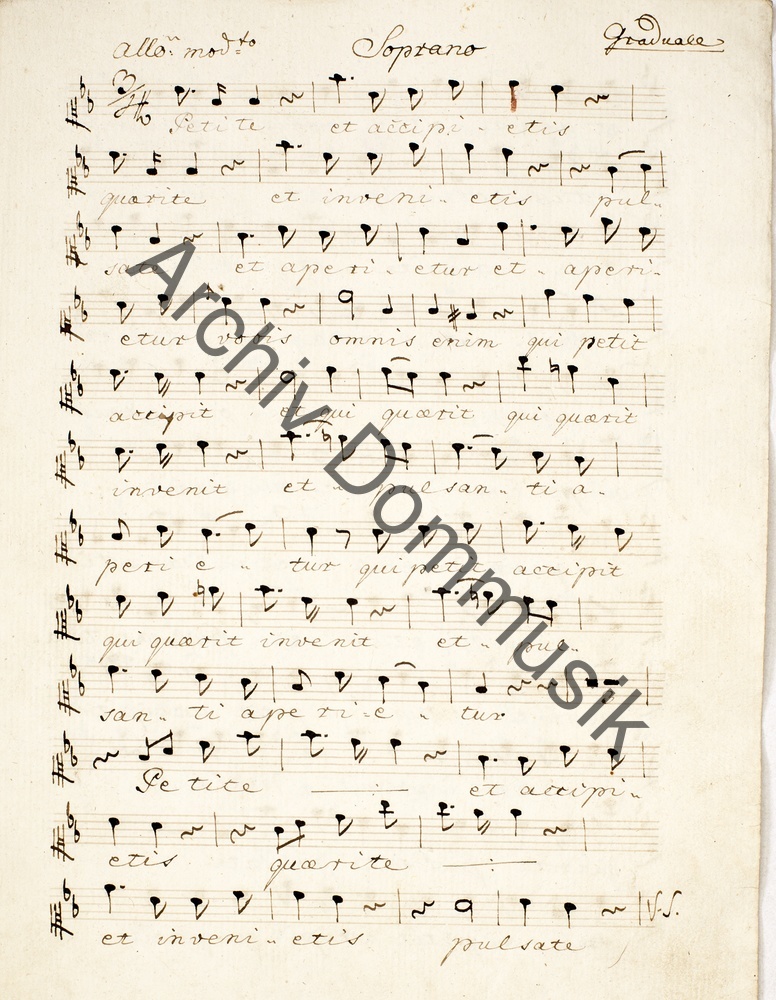 Allo: modto Soprano Graduale
3/4
Petite et accipi - etis
quærite et inveni - etis pul-
sate et aperi - etur et - aperi-
etur vobis omnis enim qui petit
accipit et qui quærit qui quærit
invenit et - pulsan - ti a-
peri e - tur qui petit accipit
qui quærit invenit et - pul-
san - ti aperi-e - tur
Petite et accipi-
etis quærite
et inveni - etis pulsate
V.S.
Archiv Dommusik